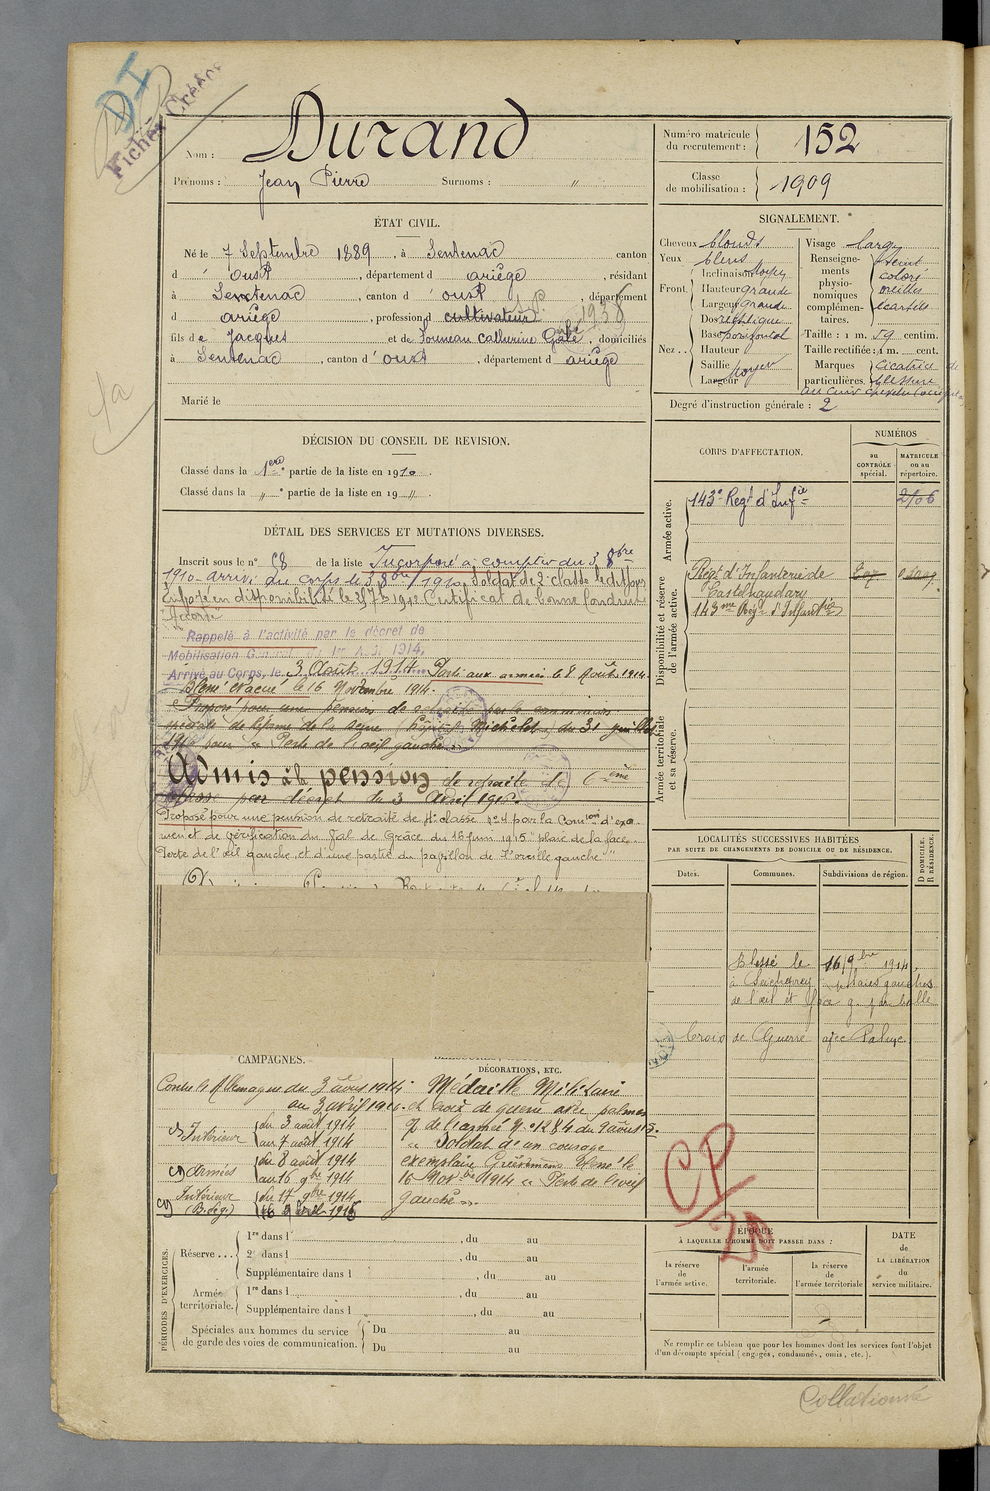 DI
Fichier
Nom : Durand
Prénoms : Jean Pierre Surnoms : "
Numéro matricule du recrutement : 152
Classe de mobilisation : 1909
ÉTAT CIVIL.
Né le 7 Septembre 1889, à Sentenac canton
d' oust, département d ariège, résidant
à Sentenac, canton d' oust, département
d ariège, profession d cultivateur 1938
fils de Jacques et de Souneau Catherine, domiciliés
à Sentenac, canton d' oust, département d ariège
Marié le
SIGNALEMENT.
Cheveux blonds
Yeux bleus
Front. Inclinaison
Hauteur grande
Largeur grande
Nez... Dos rectiligne
Base horizontal
Hauteur
Saillie moyer
Largeur
Visage large
Renseignements physionomiques complémentaires. teint coloré oreilles écartées
Taille : 1 m. 59 centim.
Taille rectifiée : 1 m. cent.
Marques particulières. Cicatrice de blessure
au cuir chevelu
Degré d'instruction générale : 2
DÉCISION DU CONSEIL DE REVISION.
Classé dans la 1ère partie de la liste en 1910.
Classé dans la " partie de la liste en 19 "
CORPS D'AFFECTATION.
NUMÉROS
au CONTRÔLE spécial.
MATRICULE ou au répertoire.
Armée active.
143e Regt d'Infie 2106
Disponibilité et réserve de l'armée active.
Régt d'Infanterie de
Castelnaudary
143me Rég. d'Infanterie
Armée territoriale et sa réserve.
DÉTAIL DES SERVICES ET MUTATIONS DIVERSES.
Inscrit sous le n° 58 de la liste Incorporé à compter du 3 8bre
1910 arrivé au corps le 3 8bre 1910, Soldat de 2e classe ledit jour
Envoyé en disponibilité le 1912 Certificat de bonne conduite
Accordé
Rappelé à l'activité par le décret de
Mobilisation Générale du 1er Août 1914,
Arrivé au Corps, le 3 Août 1914. Parti aux armées le 8 Août 1914.
Blessé évacué le 16 Novembre 1914.
Proposé pour une pension de retraite par la commission
spéciale de réforme de la Seine (hôpital Michelet) du 31 juillet
1915 pour "Perte de l'oeil gauche"
Admis à la pension de retraite de 6ème
classe par décret du 3 Avril 1916.
Proposé pour une pension de retraite de 4e classe n°4 par la Comion d'exa
men et de vérification du Val de Grâce du 16 juin 1915 "plaie de la face.
Perte de l'oeil gauche, et d'une partie du pavillon de l'oreille gauche."
LOCALITÉS SUCCESSIVES HABITÉES
PAR SUITE DE CHANGEMENTS DE DOMICILE OU DE RÉSIDENCE.
Dates. Communes. Subdivisions de région. D DOMICILE. R RÉSIDENCE.
Blessé le 16 9bre 1914,
à plaies gauches
de l'oeil et face g. par balle
Croix de Guerre avec Palme
CAMPAGNES.
Contre l'Allemagne du 3 août 1914
au 3 avril 1916.
Intérieur du 3 août 1914
au 7 août 1914
cg armées du 8 août 1914
au 16 9bre 1914
cg Intérieur (B. deg.) du 17 9bre 1914
DÉCORATIONS, ETC.
Médaille Militaire
et croix de guerre avec palmes
de l'armée N° 1284 du 9 août 15.
"Soldat d'un courage
exemplaire Grièvement blessé le
16 Novbre 1914 "Perte de l'oeil
gauche".
CP
20
PÉRIODES D'EXERCICES.
Réserve... 1re dans l , du au
2e dans l , du au
Supplémentaire dans l , du au
Armée territoriale. 1re dans l , du au
Supplémentaire dans l , du au
Spéciales aux hommes du service de garde des voies de communication. Du au
Du au
ÉPOQUE
À LAQUELLE L'HOMME DOIT PASSER DANS :
la réserve de l'armée active.
l'armée territoriale.
la réserve de l'armée territoriale
DATE de LA LIBÉRATION du service militaire.
Ne remplir ce tableau que pour les hommes dont les services font l'objet
d'un décompte spécial (engagés, condamnés, omis, etc.).
Collationné